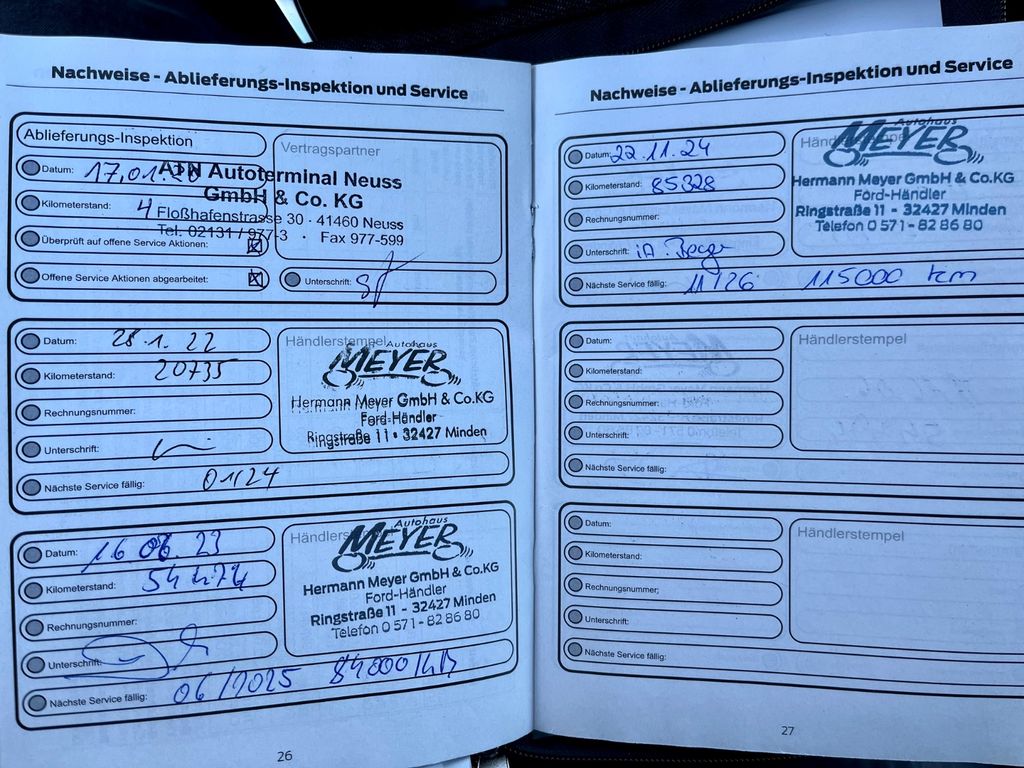 Nachweise - Ablieferungs-Inspektion und Service
Ablieferungs-Inspektion
Vertragspartner
Datum: 17.01.20
ATN Autoterminal Neuss
GmbH & Co. KG
Kilometerstand: 4
Floßhafenstrasse 30 · 41460 Neuss
Tel. 02131 / 977-3 · Fax 977-599
Überprüft auf offene Service Aktionen:
Offene Service Aktionen abgearbeitet:
Unterschrift:
Datum: 28.1.22
Kilometerstand: 20735
Rechnungsnummer:
Unterschrift:
Nächste Service fällig: 01/24
Händlerstempel
Autohaus
MEYER
Hermann Meyer GmbH & Co.KG
Ford-Händler
Ringstraße 11 - 32427 Minden
Datum: 16 06. 23
Kilometerstand: 54474
Rechnungsnummer:
Unterschrift:
Nächste Service fällig: 06/2025 84000 KM
Händlers
Autohaus
MEYER
Hermann Meyer GmbH & Co.KG
Ford-Händler
Ringstraße 11 - 32427 Minden
Telefon 0 571 - 82 86 80
26
Nachweise - Ablieferungs-Inspektion und Service
Datum: 22.11.24
Kilometerstand: 85328
Rechnungsnummer:
Unterschrift: iA.
Nächste Service fällig: 11/26 115000 km
Autohaus
MEYER
Hermann Meyer GmbH & Co.KG
Ford-Händler
Ringstraße 11 - 32427 Minden
Telefon 0 571 - 82 86 80
Datum:
Kilometerstand:
Rechnungsnummer:
Unterschrift:
Nächste Service fällig:
Händlerstempel
Datum:
Kilometerstand:
Rechnungsnummer:
Unterschrift:
Nächste Service fällig:
Händlerstempel
27